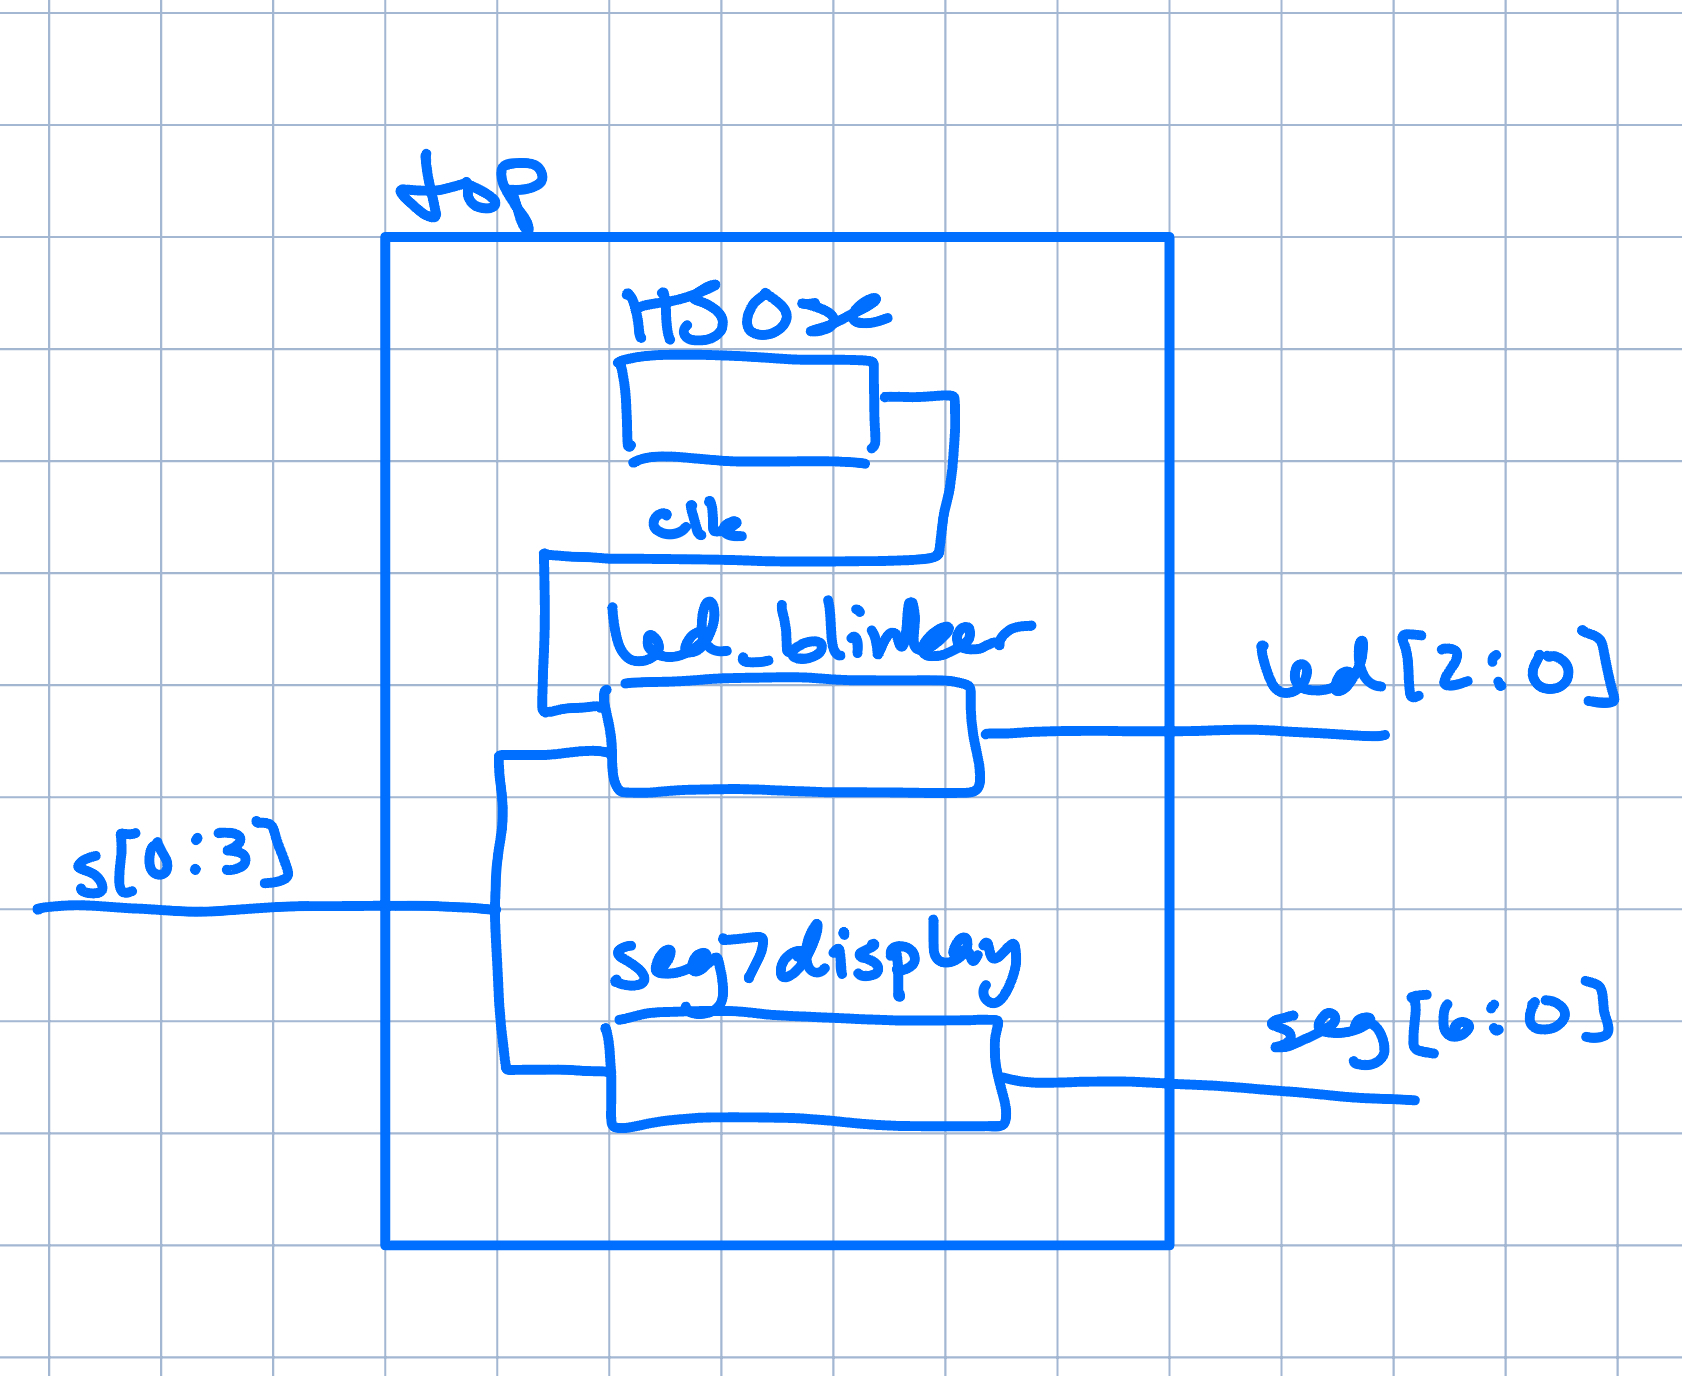 top
HSOSC
clk
led_blinker
led[2:0]
s[0:3]
seg7display
seg[6:0]